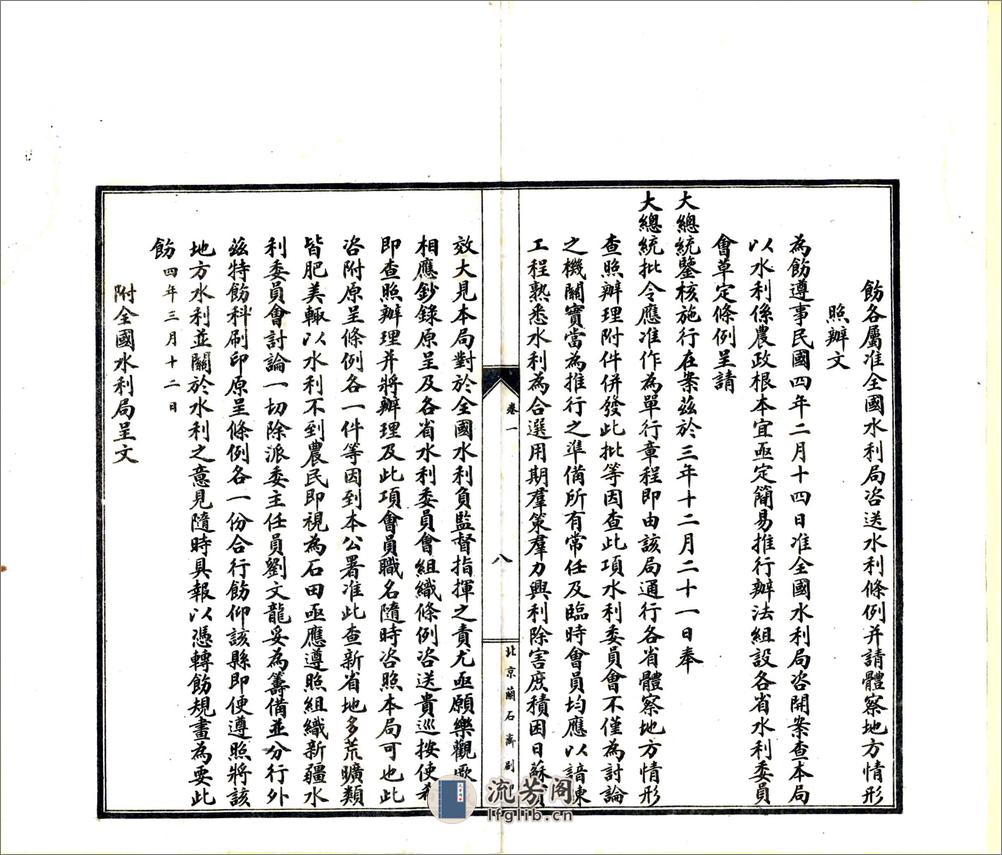 飭各屬准全國水利局咨送水利條例并請體察地方情形
照辦文
為飭遵事民國四年二月十四日准全國水利局咨開案查本局
以水利係農政根本宜亟定簡易推行辦法組設各省水利委員
會草定條例呈請
大總統鑒核施行在案茲於三年十二月二十一日奉
大總統批令應准作為單行章程即由該局通行各省體察地方情形
查照辦理附件併發此批等因查此項水利委員會不僅為討論
之機關實當為推行之準備所有常任及臨時會員均應以諳悚
工程熟悉水利為合選用期羣策羣力興利除害庶積因日蘇
卷一
八
北京蘭石齋刷
效大見本局對於全國水利負監督指揮之責尤亟願樂觀厥
相應鈔錄原呈及各省水利委員會組織條例咨送貴巡按使希
即查照辦理并將辦理及此項會員職名隨時咨照本局可也此
咨附原呈條例各一件等因到本公署准此查新省地多荒曠類
皆肥美輙以水利不到農民即視為石田亟應遵照組織新疆水
利委員會討論一切除派委主任員劉文龍妥為籌備並分行外
茲特飭科刷印原呈條例各一份合行飭仰該縣即便遵照將該
地方水利並關於水利之意見隨時具報以憑轉飭規畫為要此
飭 四年三月十二日
附全國水利局呈文
流芳阁
lfglib.cn